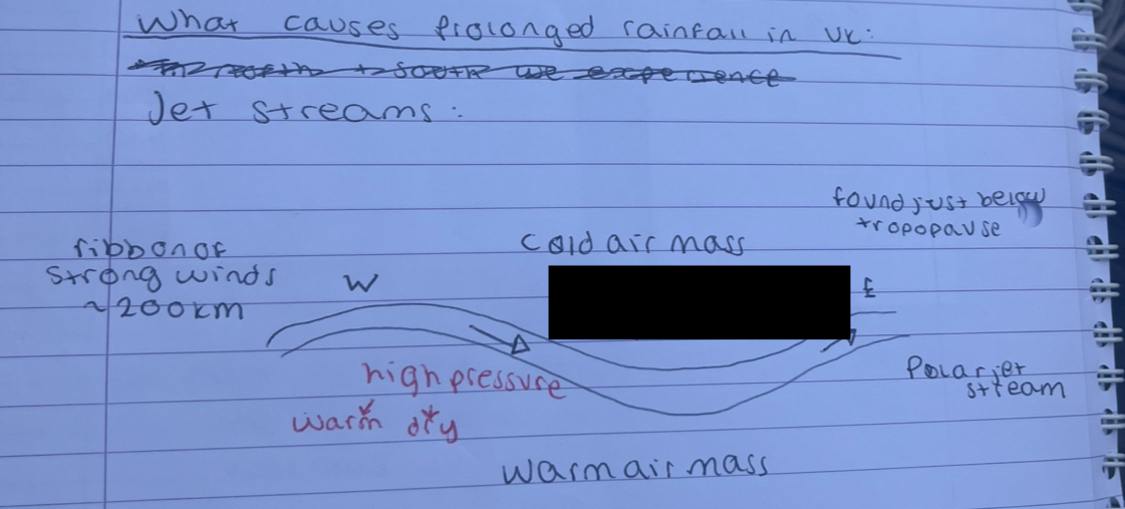 What causes prolonged rainfall in UK:
Jet streams:
found just below
tropopause
ribbon of
strong winds
~200km
cold air mass
W
E
high pressure
warm dry
Polar jet
stream
warm air mass